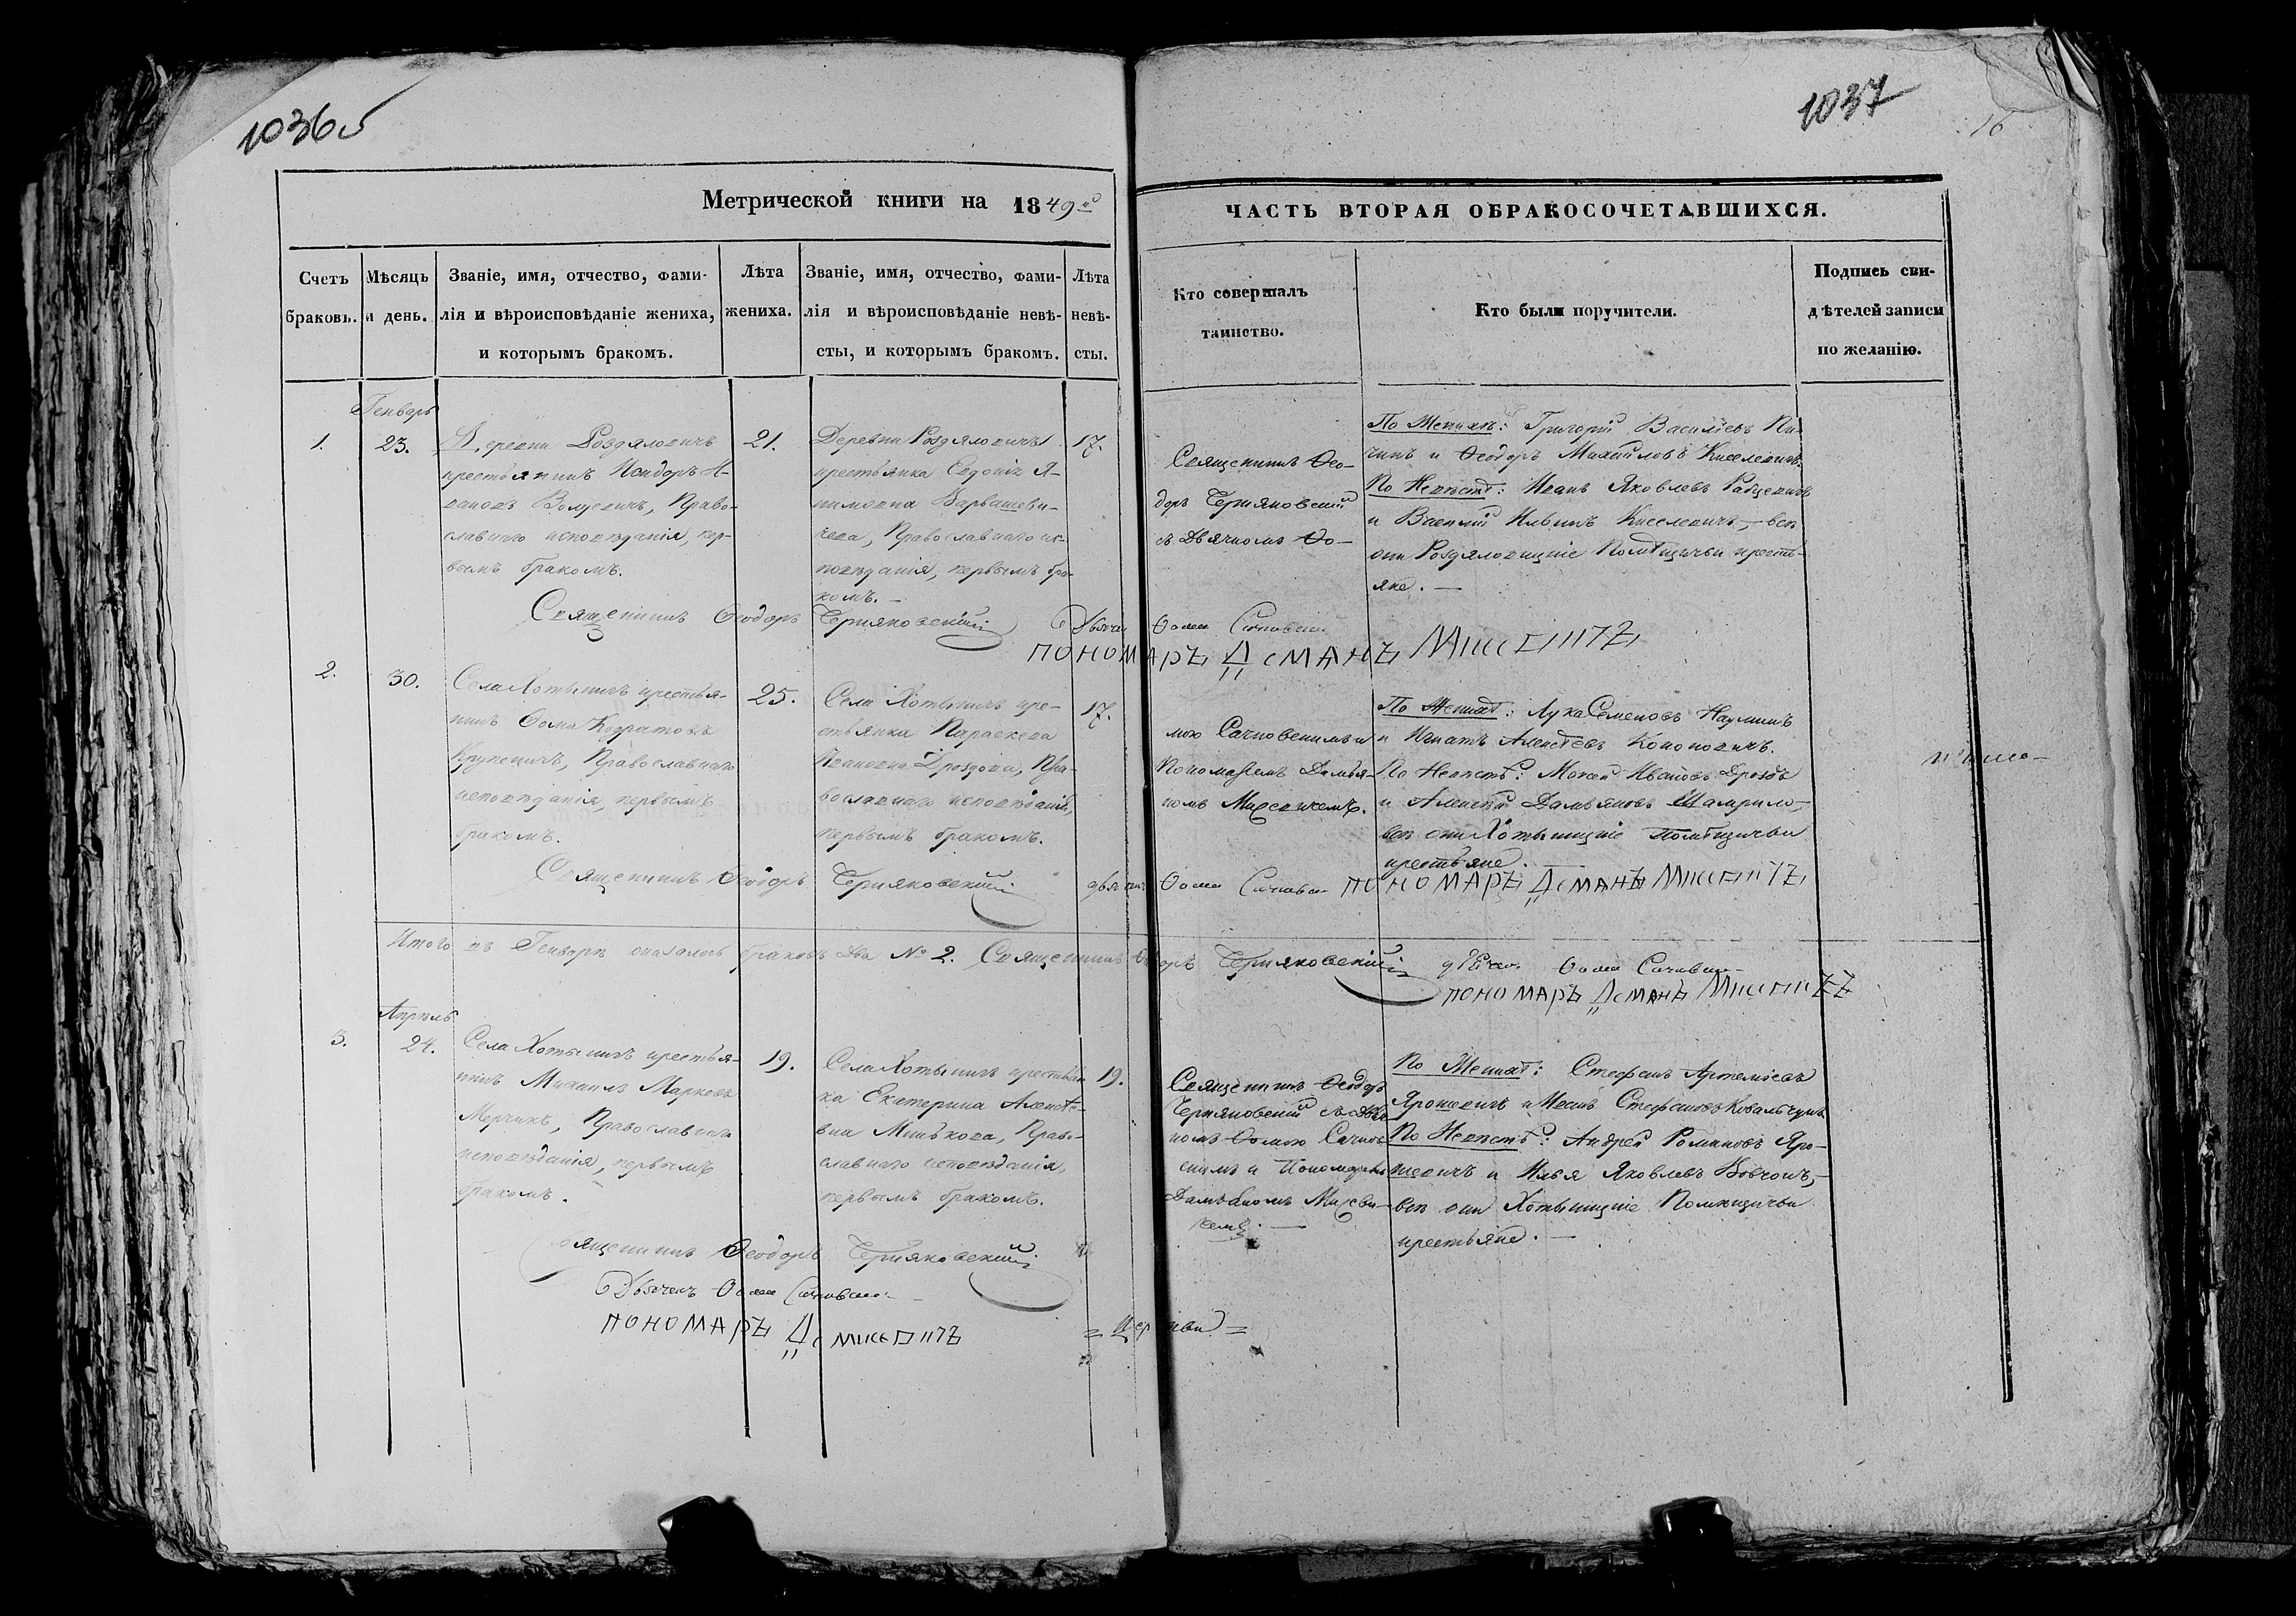 1036
1037
16
Метрической книги на 1849й
ЧАСТЬ ВТОРАЯ ОБРАКОСОЧЕТАВШИХСЯ.
Счетъ
браковъ.
Мѣсяцъ
и день.
Званіе, имя, отчество, фами-
лія и вѣроисповѣданіе жениха,
и которымъ бракомъ.
Лѣта
жениха.
Званіе, имя, отчество, фами-
лія и вѣроисповѣданіе невѣ-
сты, и которымъ бракомъ.
Лѣта
невѣ-
сты.
Кто совершалъ
таинство.
Кто были поручители.
Подпись сви-
дѣтелей записи
по желанію.
1.
Генварь
23.
Деревни Роздяловичъ
крестьянинъ Исидоръ И-
вановъ Право-
славнаго исповѣданія, пер-
вымъ бракомъ.
21.
Деревни Роздяловичъ
крестьянка Евдокія Я-
кимовна Варвашеви-
чева, Православнаго ис-
повѣданія, первымъ бра-
комъ. —
17.
Священникъ Ѳео-
доръ Черняковскій
съ Дьячкомъ Ѳо-
По Женихѣ: Григорій Васильевъ
и Ѳеодоръ Михайловъ Киселевичъ.
По Невѣстѣ: Иванъ Яковлевъ Рабцевичъ
и Василій Ильинъ Киселевичъ, — всѣ
они Роздяловицкіе Помѣщичьи кресть-
яне. —
Священникъ Ѳеодоръ Черняковскій Дьячекъ Ѳома
ПОНОМАРЪ
2.
30.
Села Хотыничъ крестья-
нинъ Ѳома Кодратовъ
Крупеничъ, Православнаго
исповѣданія, первымъ
бракомъ.
25.
Села Хотыничъ кре-
стьянка Параскева
Ивановна Дроздова, Пра-
вославнаго исповѣданія,
первымъ бракомъ.
17.
мою Сачковскимъ и
Пономаремъ Дамья-
номъ Михевичемъ.
По Женихѣ: Лука Семеновъ Наумчикъ
и Игнатъ Алексѣевъ Кононовичъ.
По Невѣстѣ: Мокей Ивановъ Дроздъ
и Алексѣй Дамьяновъ
всѣ они Хотыницкіе помѣщичьи
крестьяне. —
Священникъ Ѳеодоръ Черняковскій дьячекъ Ѳома ПОНОМАРЪ
Итого въ Генварѣ оказалось браковъ два № 2. Священникъ Ѳеодоръ Черняковскій дьячекъ Ѳома
ПОНОМАРЪ
3.
Апрѣль
24.
Села Хотыничъ крестья-
нинъ Михаилъ Марковъ
Православнаго
исповѣданія, первымъ
бракомъ.
19.
Села Хотыничъ крестьян
ка Екатерина Алексѣе-
вна Минькова, Право-
славнаго исповѣданія,
первымъ бракомъ.
19.
Священникъ Ѳеодоръ
Черняковскій съ Дьяч
комъ Ѳомою Сачков
скимъ и Пономаремъ
Дамьяномъ Михеви-
чемъ. —
По Женихѣ: Стефанъ Артеміевъ
Ярошевичъ и Иванъ Стефановъ Ковальчукъ
По Невѣстѣ: Андрей Романовъ Яро-
шевичъ и Илья Яковлевъ Вовчокъ, —
всѣ они Хотыницкіе Помѣщичьи
крестьяне. —
Священникъ Ѳеодоръ Черняковскій
Дьячекъ Ѳома
ПОНОМАРЪ
= Церкви =